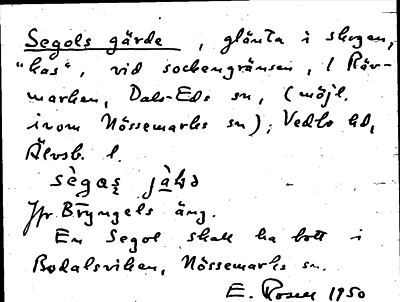 Segols gärde, glänta i skogen,
"kas", vid sockengränsen, i Räv-
marken, Dals-Eds sn, (möjl.
inom Nössemarks sn); Vedbo hd,
Älvsb. l.
sègɑș jæ̀ḷə
Jfr Bryngels äng.
En Segol skall ha bott i
Bodalsviken, Nössemarks sn.
E. Rosell 1950